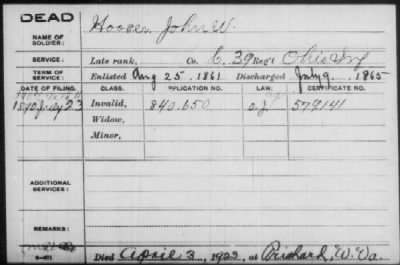 DEAD
NAME OF SOLDIER: Hoover, John W.
SERVICE: Late rank, Co. C, 39 Reg't Ohio Inf
TERM OF SERVICE: Enlisted Aug 25, 1861 Discharged July 9, 1865
DATE OF FILING. CLASS. APPLICATION NO. LAW. CERTIFICATE NO.
1890 July 23 Invalid, 840.650 579141
Widow,
Minor,
ADDITIONAL SERVICES:
REMARKS:
Died April 3, 1923, at Prichard, W. Va.